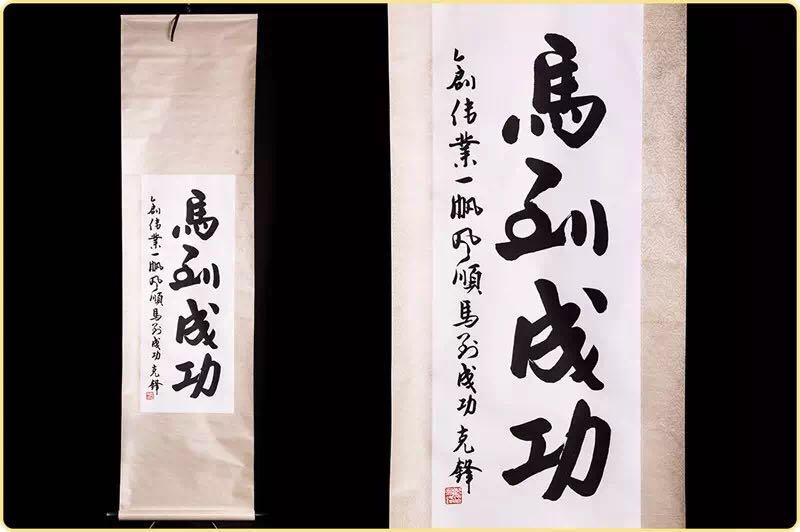 馬到成功
創偉業一帆风順馬到成功克鋒
馬到成功
創偉業一帆风順馬到成功克鋒